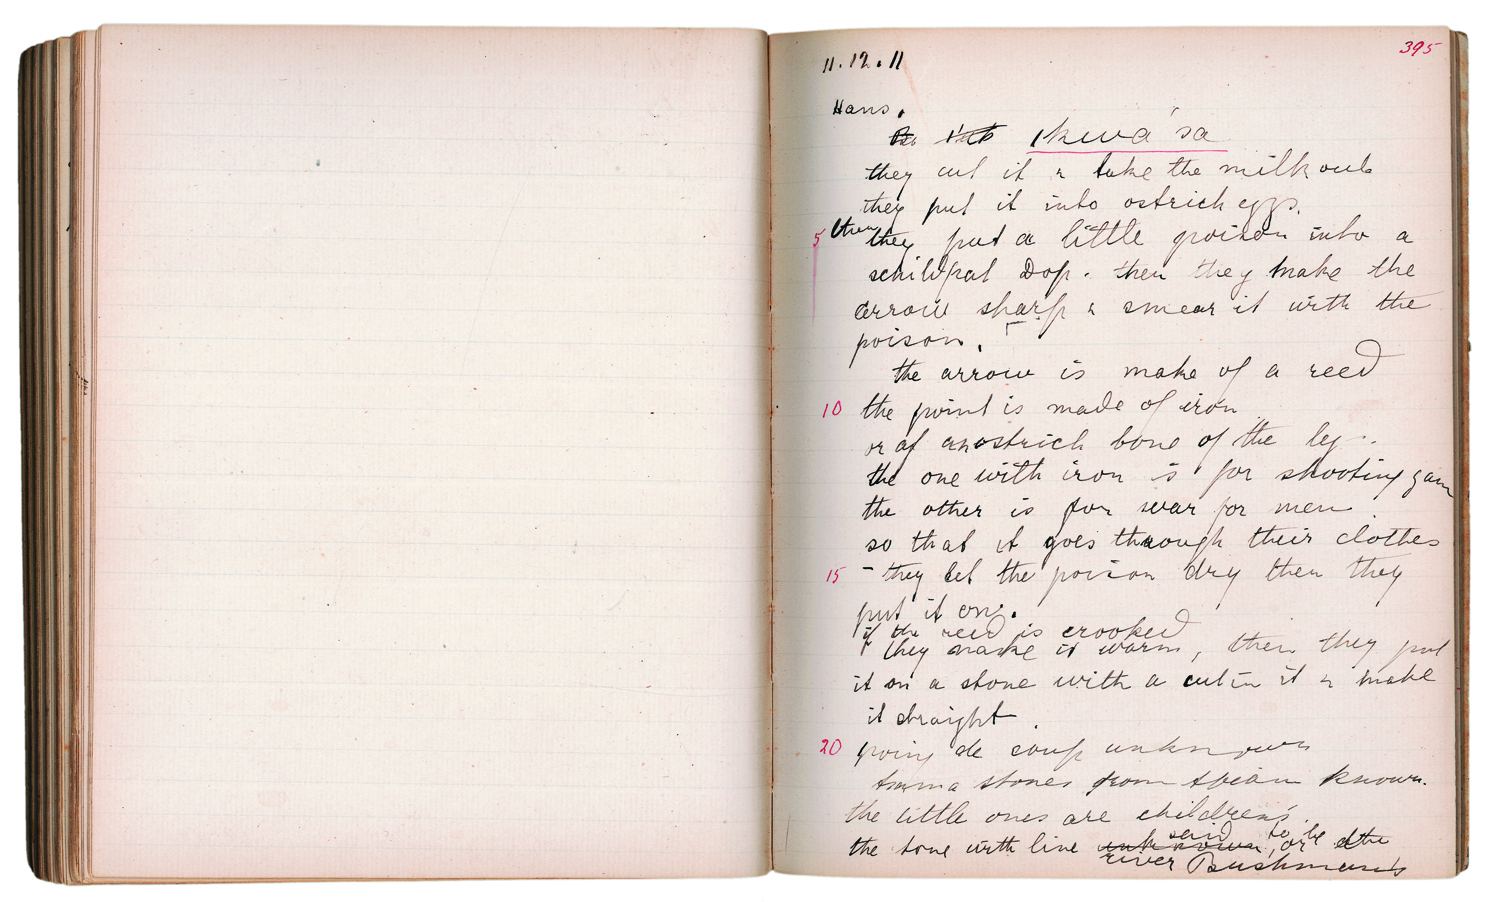 395
11.12.11
Hans.
ǀkwa'sa
they cut it & take the milk out
they put it into ostrich eggs.
5 then they put a little poison into a
schilpat Dop. then they make the
arrow sharp & smear it with the
poison.
the arrow is make of a reed
10 the point is made of iron
or of an ostrich bone of the leg.
the one with iron is for shooting gam
the other is for war for men
so that it goes through their clothes
15 - they let the poison dry then they
put it on.
if the reed is crooked
they make it warm, then they put
it on a stone with a cut in it & make
it straight.
20 poing de coup unknown
stones from known.
the little ones are children's.
the tone with line unknown said to be
river Bushman's